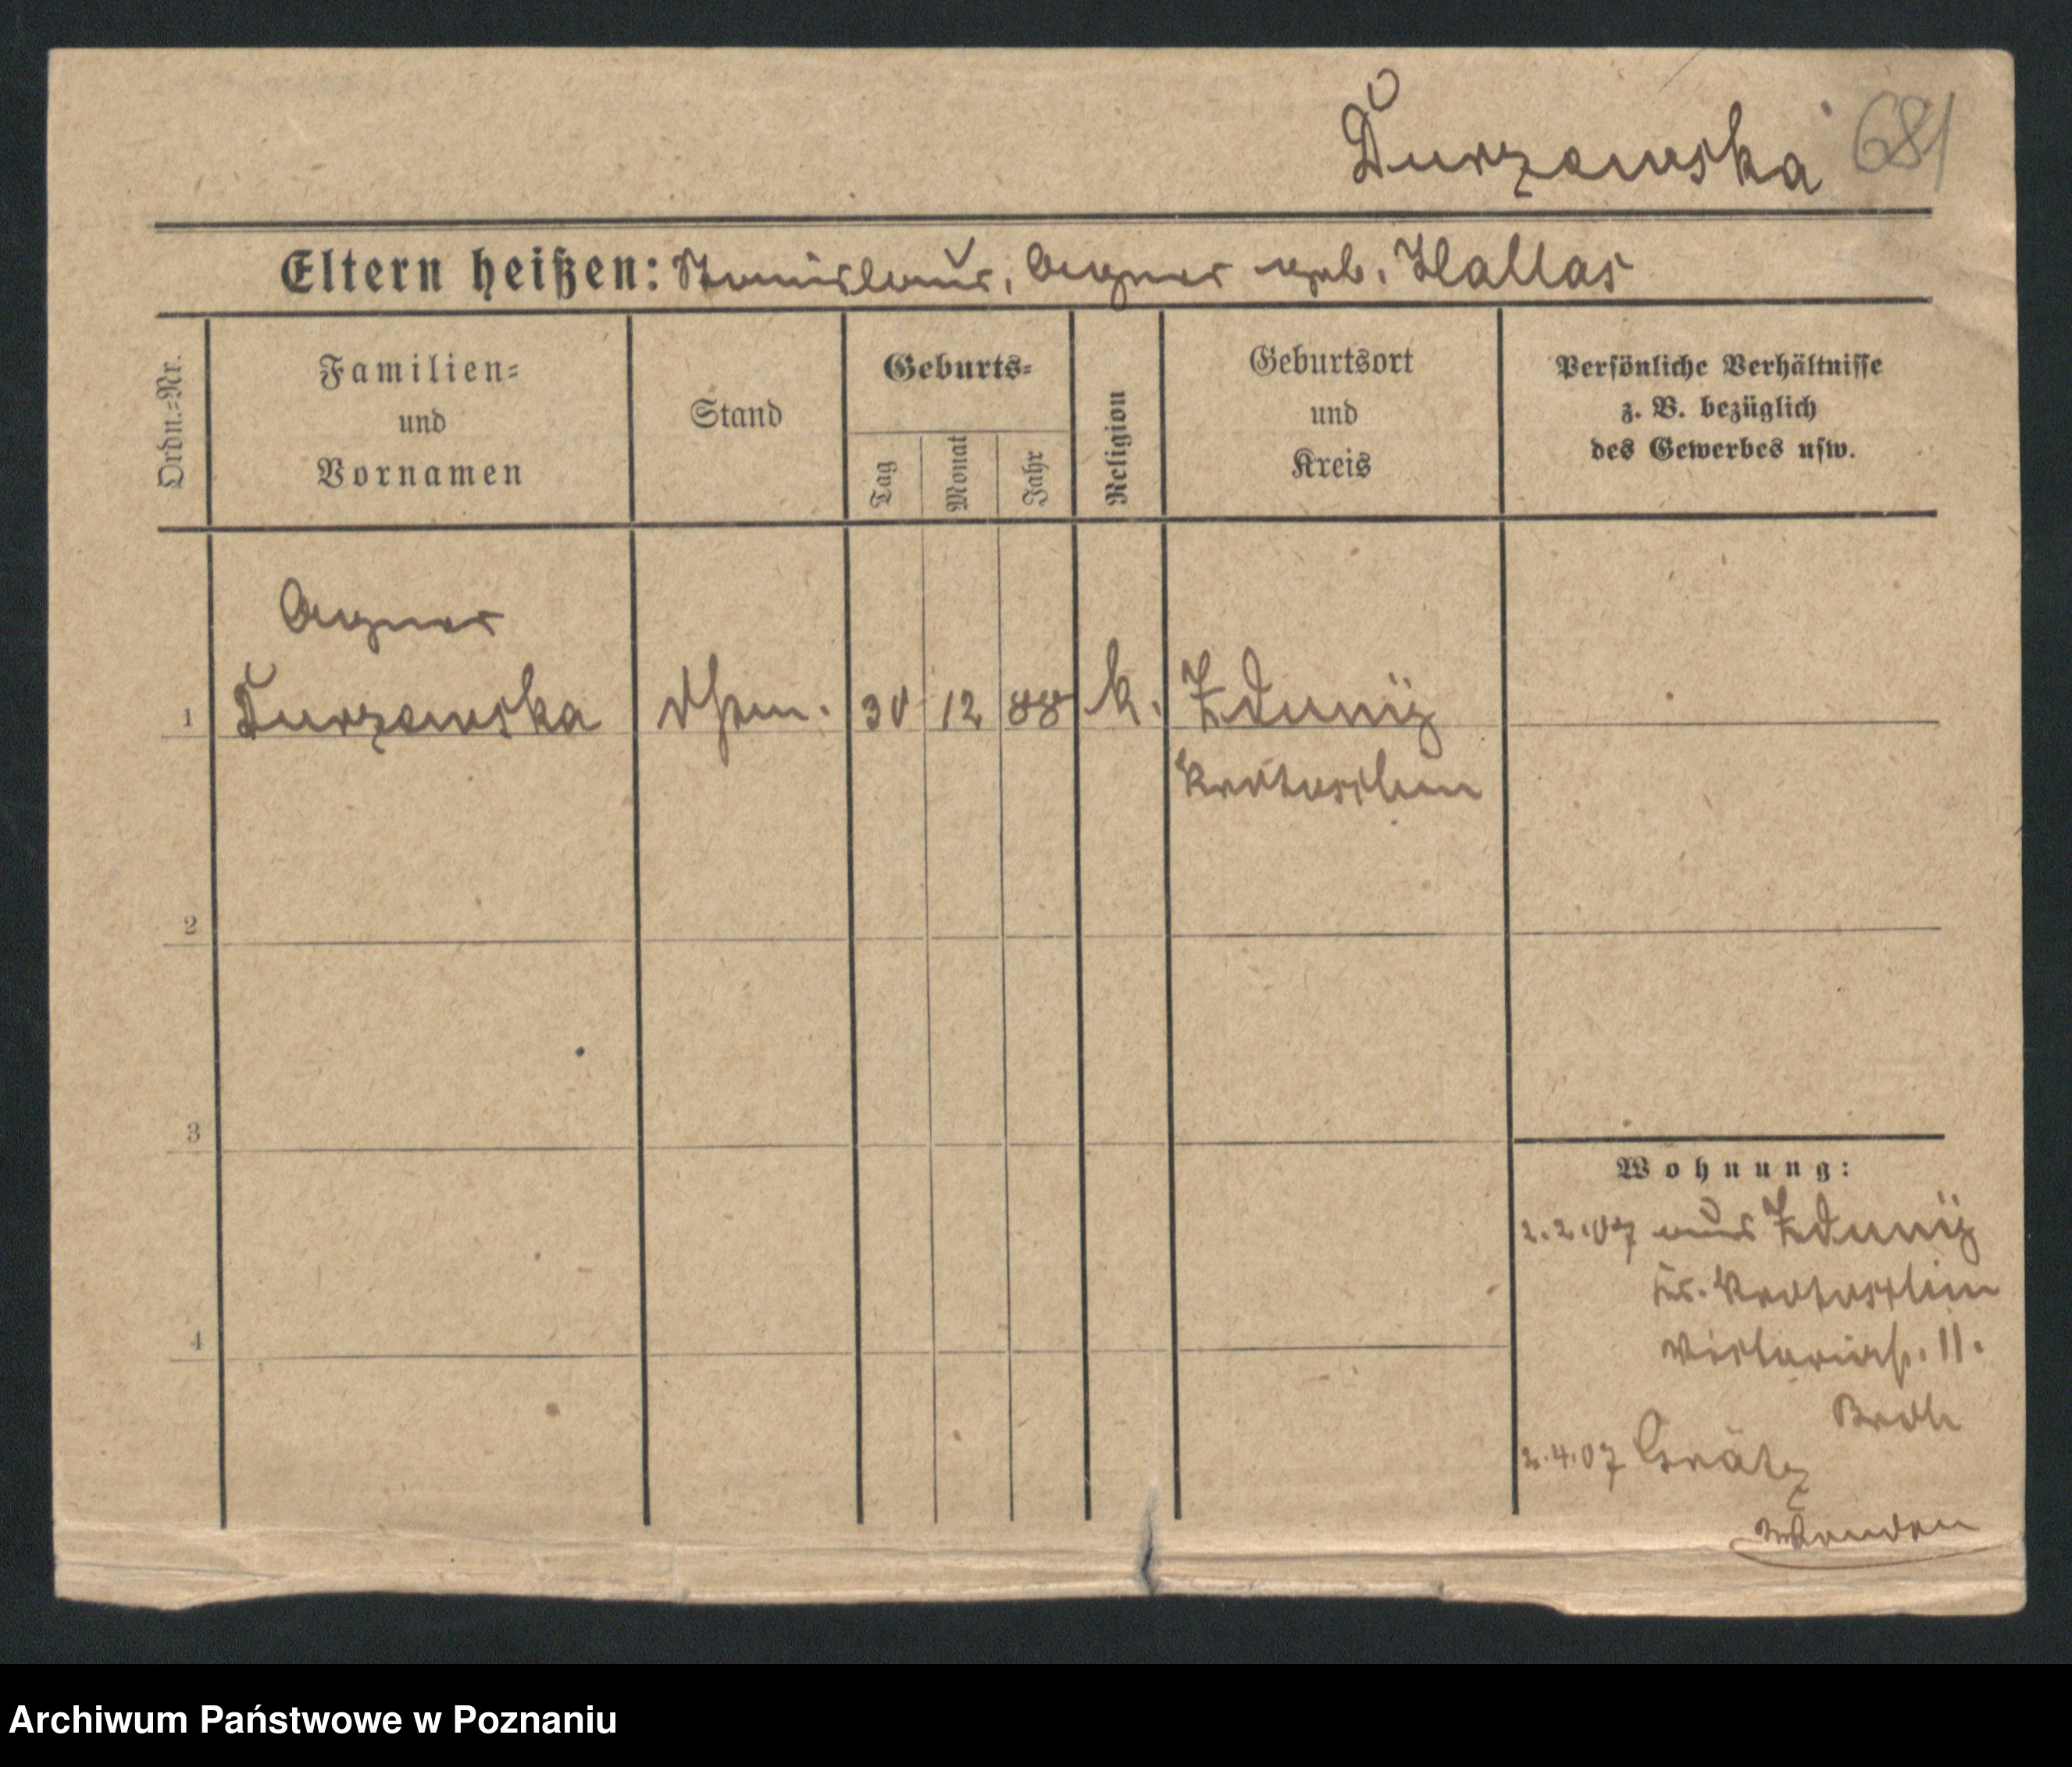 Durzewska 681
Eltern heißen: Stanislaus, Agnes geb. Hallas
Ordn.=Nr.
Familien=
und
Vornamen
Stand
Geburts=
Tag
Monat
Jahr
Religion
Geburtsort
und
Kreis
Persönliche Verhältnisse
z. B. bezüglich
des Gewerbes usw.
Agnes
1 Durzewska 30 12 88 k. Zduny
Krotoschin
2
3
4
Wohnung:
2.2.07 aus Zduny
Kr. Krotoschin
Victoriastr. 11.
2.4.07 Grätz
Archiwum Państwowe w Poznaniu